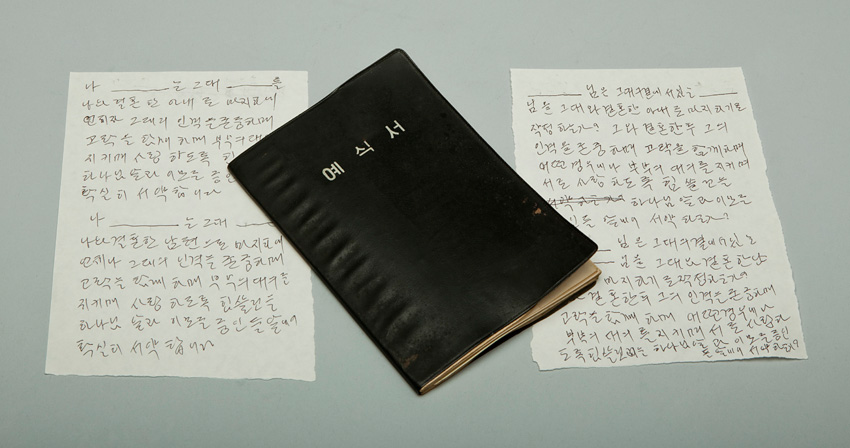 나 ________ 는 그대 ________ 를
나와 결혼한 아내로 마지하여
그대의 인격을 존중하며
고락을 함께 하며 부부의 대
지키며 사랑 하도록 힘
하나님 앞과
확실히 서약 합니다
나 ________ 는 그대
나와 결혼한 남편으로 마지하여
언제나 그대의 인격을 존중하며
고락을 함께 하며 부부의 대의를
지키며 사랑 하도록 힘쓸것을
하나님 앞과 이모든 증인들앞에서
확실히 서약 합니다
예식서
________ 님은 그대의 곁에 서있는 ________
님을 그대와 결혼한 아내로 마지하기로
작정 하는가? 그와 결혼한후 그의
인격을 존중하며 고락을 함께하며
어떤경우에나 부부의 대의를 지키며
서로 사랑 하도록 힘 쓸것을
하나님 앞과 이모든
인들 앞에서 서약 하는가?
________ 님은 그대의 곁에 서있는
님을 그대와 결혼한 남
마지하기로 작정하는가
결혼한후 그의 인격을 존중하며
고락을 함께 하며 어떤경우에나
부부의 대의를 지키며 서로 사랑하
도록 힘쓸것을 하나님 앞과 이모든증인
들 앞에서 서약 하는가?